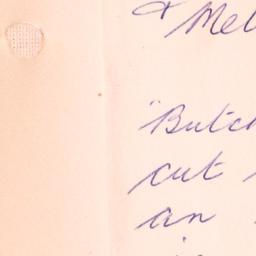 & Mel
"Butch
cut
an